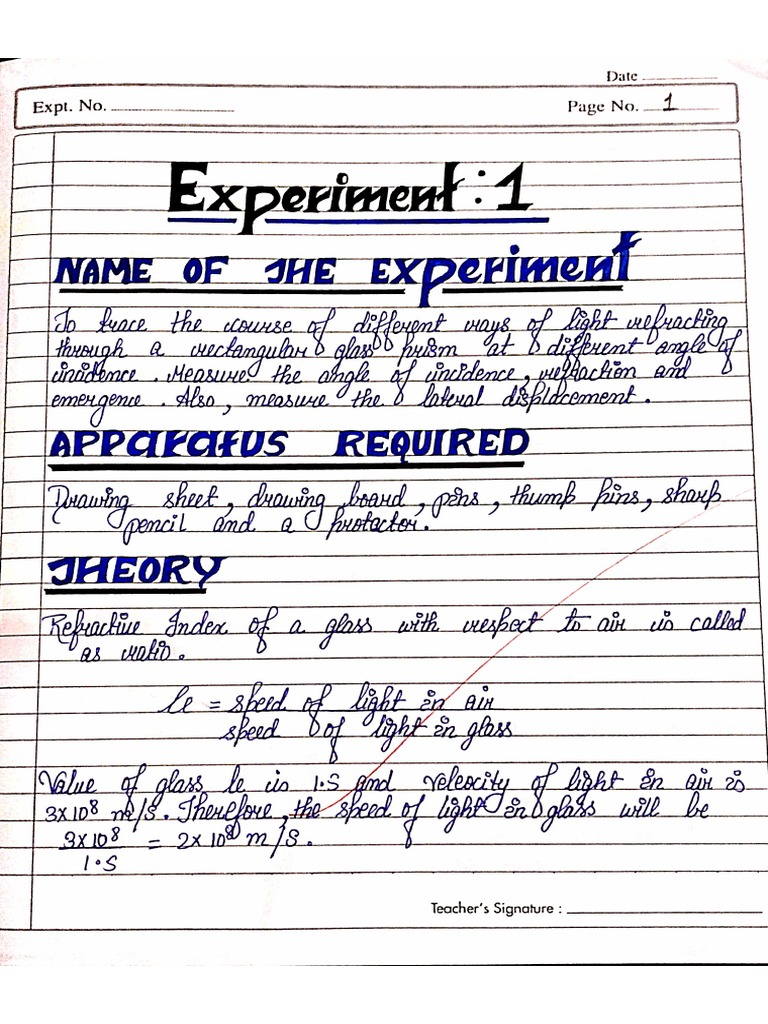 Date
Expt. No.
Page No. 1
Experiment : 1
NAME OF THE Experiment
To trace the course of different rays of light refracting
through a rectangular glass prism at different angle of
incidence. Measure the angle of incidence, refraction and
emergence. Also, measure the lateral displacement.
APPARATUS REQUIRED
Drawing sheet, drawing board, pins, thump pins, sharp
pencil and a protactor.
THEORY
Refractive Index of a glass with respect to air is called
as ratio.
le = speed of light in air
speed of light in glass
Value of glass le is 1.5 and veleocity of light in air is
3×10⁸ m/s. Therefore, the speed of light in glass will be
3×10⁸ = 2×10⁸ m/s.
1.5
Teacher's Signature :